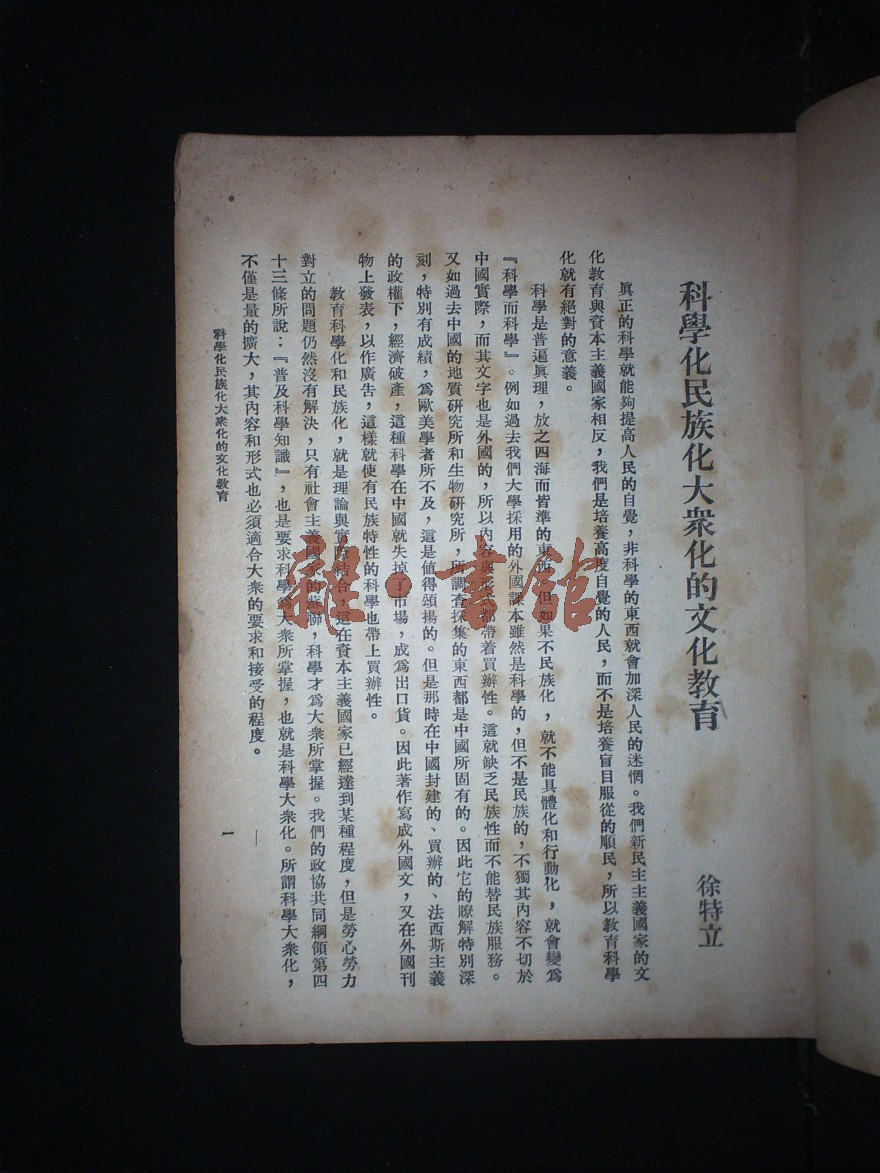 科學化民族化大衆化的文化教育
徐特立
眞正的科學就能夠提高人民的自覺，非科學的東西就會加深人民的迷惘。我們新民主主義國家的文
化教育與資本主義國家相反，我們是培養高度自覺的人民，而不是培養盲目服從的順民，所以教育科學
化就有絕對的意義。
科學是普遍眞理，放之四海而皆準的東西，但如果不民族化，就不能具體化和行動化，就會變爲
『科學而科學』。例如過去我們大學採用的外國課本雖然是科學的，但不是民族的，不獨其內容不切於
中國實際，而其文字也是外國的，所以內容與形式都帶着買辦性。這就缺乏民族性而不能替民族服務。
又如過去中國的地質研究所和生物研究所，所調查採集的東西都是中國所固有的。因此它的瞭解特別深
刻，特別有成績，爲歐美學者所不及，這是值得頌揚的。但是那時在中國封建的、買辦的、法西斯主義
的政權下，經濟破產，這種科學在中國就失掉了市場，成爲出口貨。因此著作寫成外國文，又在外國刊
物上發表，以作廣告，這樣就使有民族特性的科學也帶上買辦性。
教育科學化和民族化，就是理論與實際結合，這在資本主義國家已經達到某種程度，但是勞心勞力
對立的問題仍然沒有解決，只有社會主義國家的蘇聯，科學才爲大衆所掌握。我們的政協共同綱領第四
十三條所說：『普及科學知識』，也是要求科學爲大衆所掌握，也就是科學大衆化。所謂科學大衆化，
不僅是量的擴大，其內容和形式也必須適合大衆的要求和接受的程度。
科學化民族化大衆化的文化教育
一
雜·書館